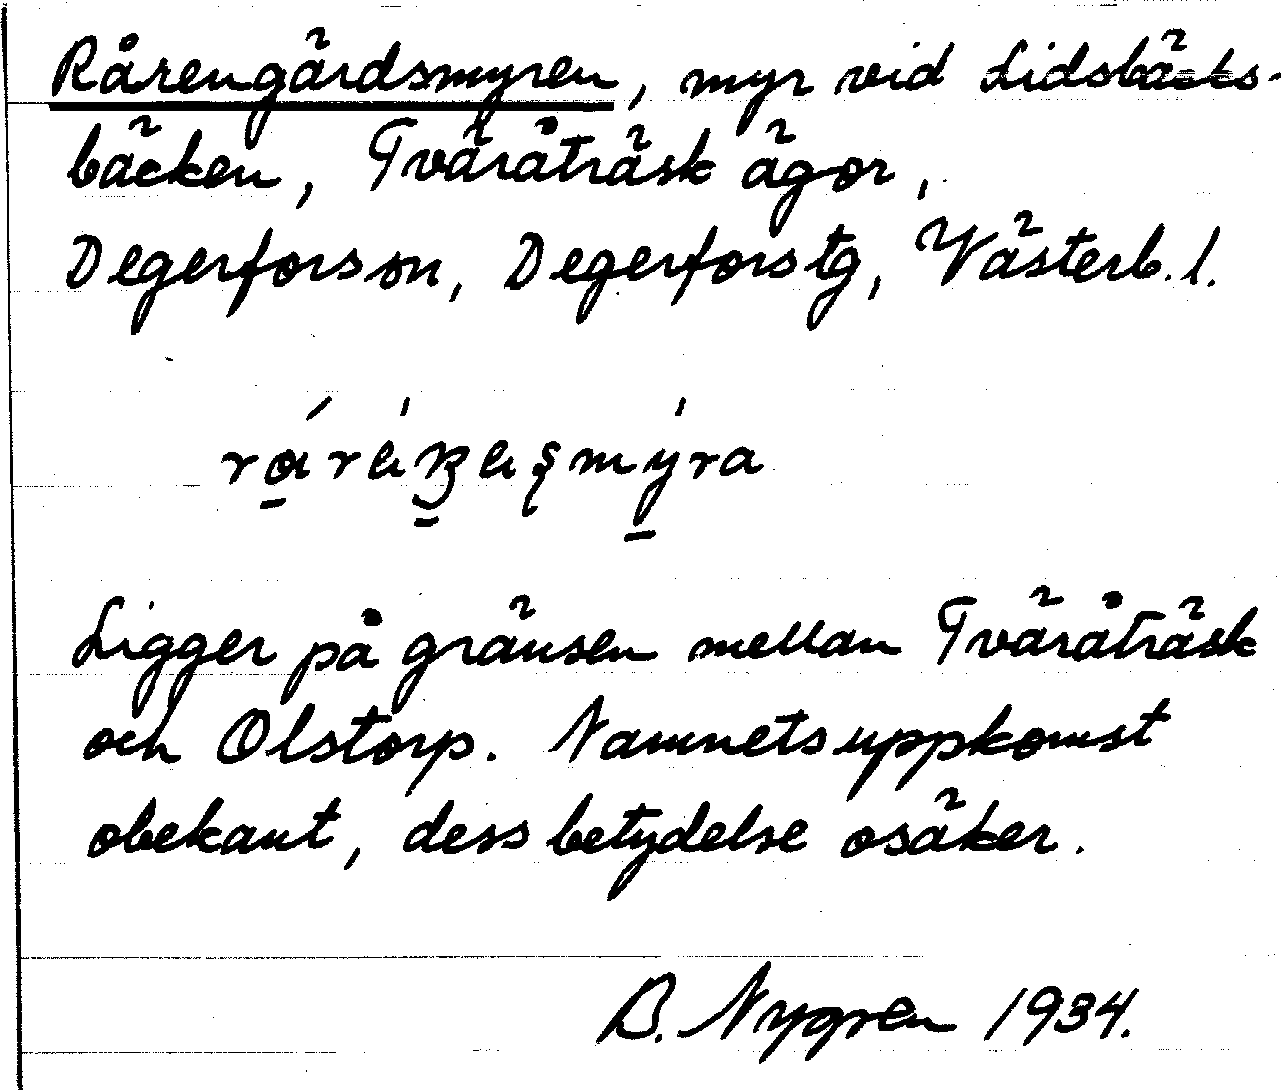 Rårengärdsmyren, myr vid Lidsbäcks-
bäcken, Tväråträsk ägor,
Degerforsson, Degerforstg, Västerb.l.
Ligger på gränsen mellan Tväråträsk
och Olstorp. Namnets uppkomst
obekant, dess betydelse osäker.
B. Nygren 1934.